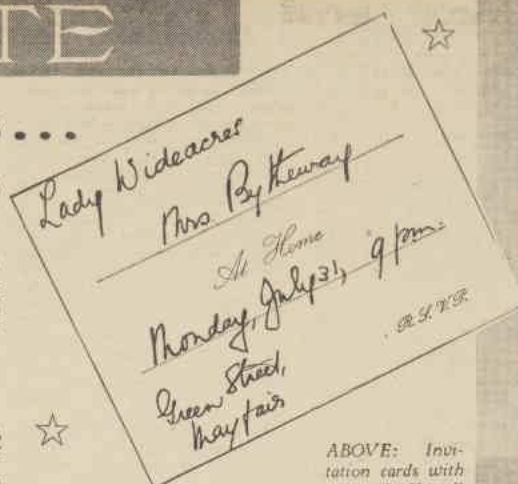 TE
....
Lady Wideacres
Mrs Bytheway
At Home
Monday, July 31, 9 pm.
R.S.V.P.
Green Street,
Mayfair
ABOVE: Invi-
tation cards with